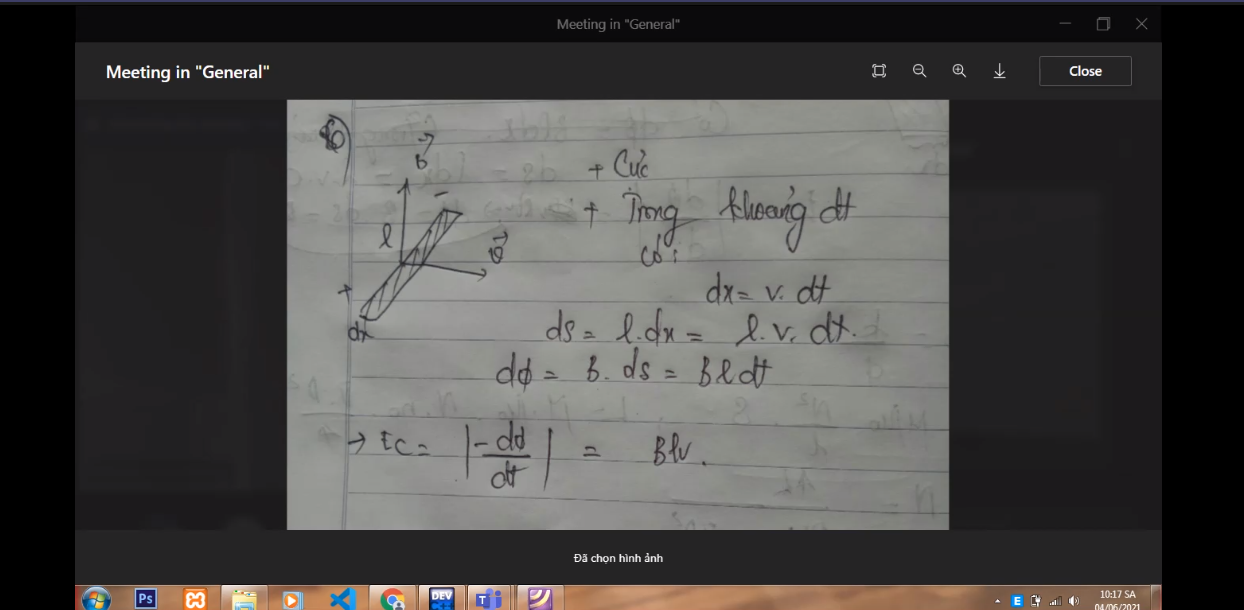 Meeting in "General"
Meeting in "General"
Close
B
+ Cực
l
-
+ Trong khoảng dt
v
có:
+
dx = v. dt
dx
ds = l.dx = l.v. dt.
dϕ = B. ds = Bldt
→ Ec = |-dϕ/dt| = Blv.
Đã chọn hình ảnh
Ps
DEV
E
10:17 SA
04/06/2021